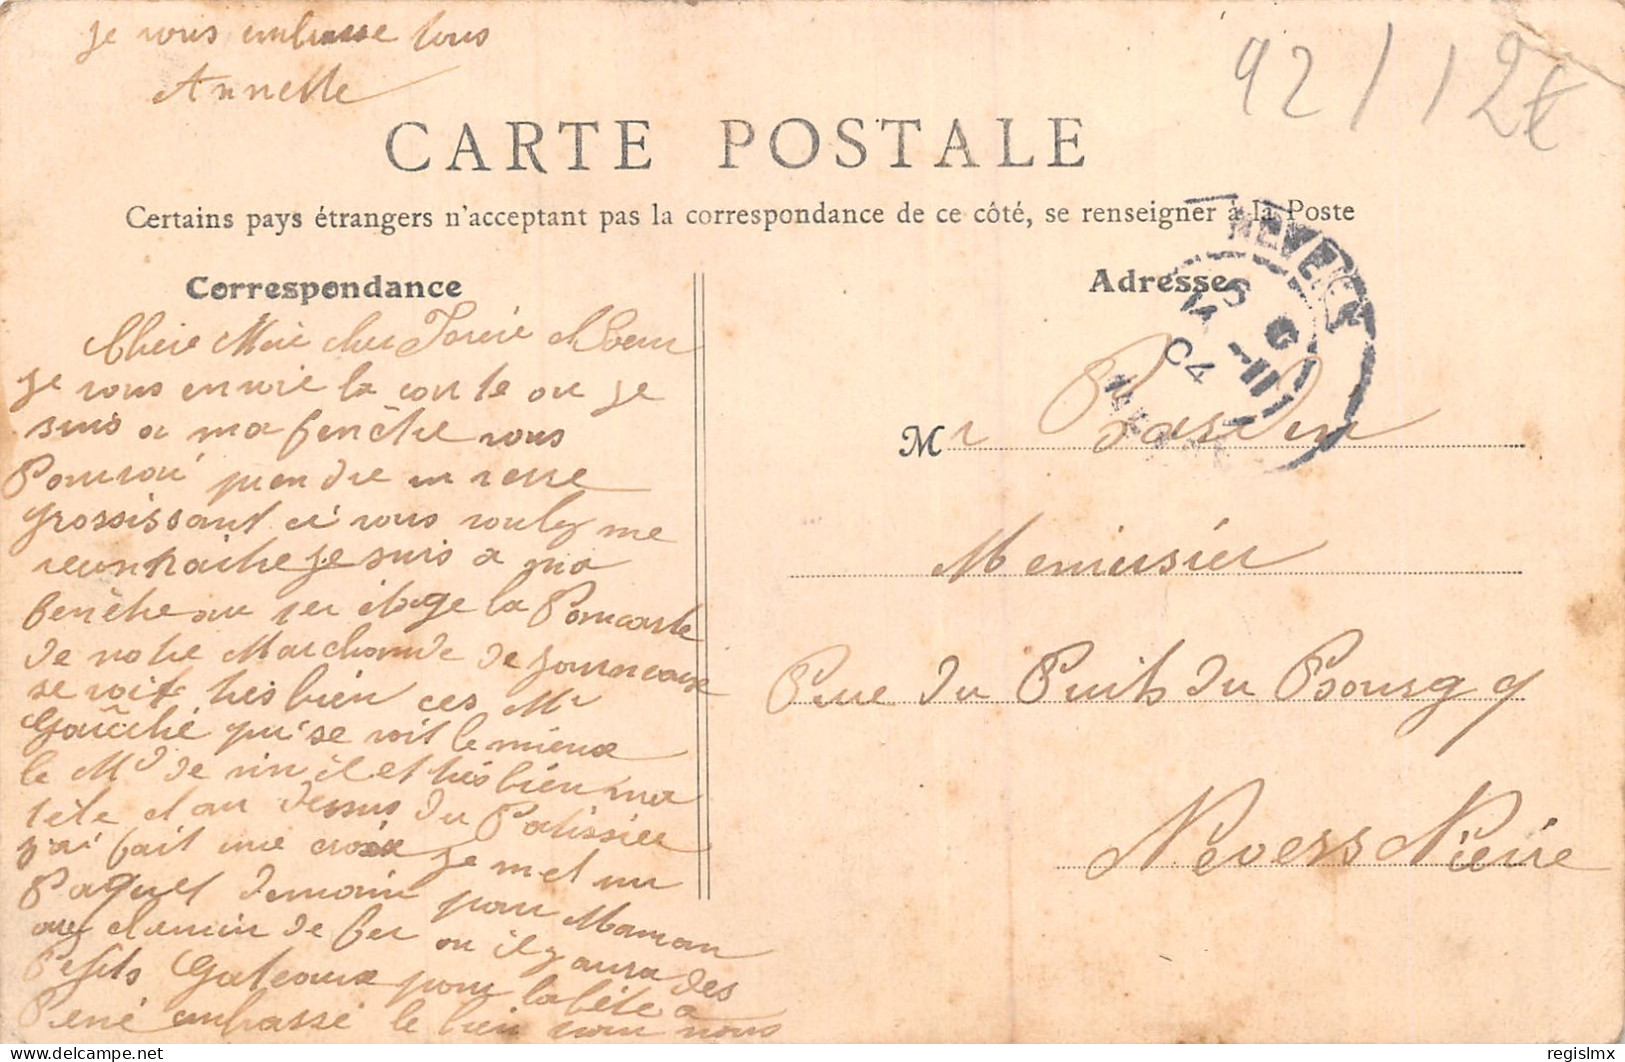 je vous embrasse tous
Annette
92 / 12€
CARTE POSTALE
Certains pays étrangers n'acceptant pas la correspondance de ce côté, se renseigner à la Poste
Correspondance
Adresse
NEVERS
6 -11
04
NIEVRE
Chère Marie cher
je vous envoie la carte ou je
suis a ma fenêtre vous
prendre un verre
grossissant ci vous voulez me
reconnaitre je suis a ma
fenètre au 1er étage la Pancarte
de notre Marchande de journeaux
se voit très bien ces Mr
Gauché qui se voit le mieux
le Md de vin il et très bien ma
tête et au dessus du Patissier
j'ai fait une croix je met un
Paquet demain pour Maman
au chemin de fer ou il y aura des
Petits Gateaux pour la fête a
René embrassé le bien pour nous
Mr
Menuisier
Rue du Puits du Bourg 9
Nevers Nièvre
regislmx